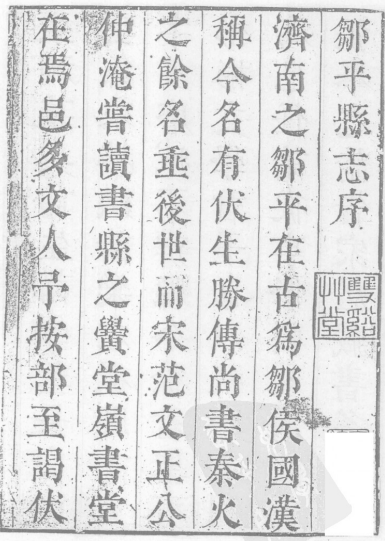 鄒平縣志序
濟南之鄒平在古爲鄒侯國漢
稱今名有伏生勝傳尚書秦火
之餘名垂後世而宋范文正公
仲淹嘗讀書縣之黌堂嶺書堂
在焉邑多文人予按部至謁伏
雙谿
艸堂